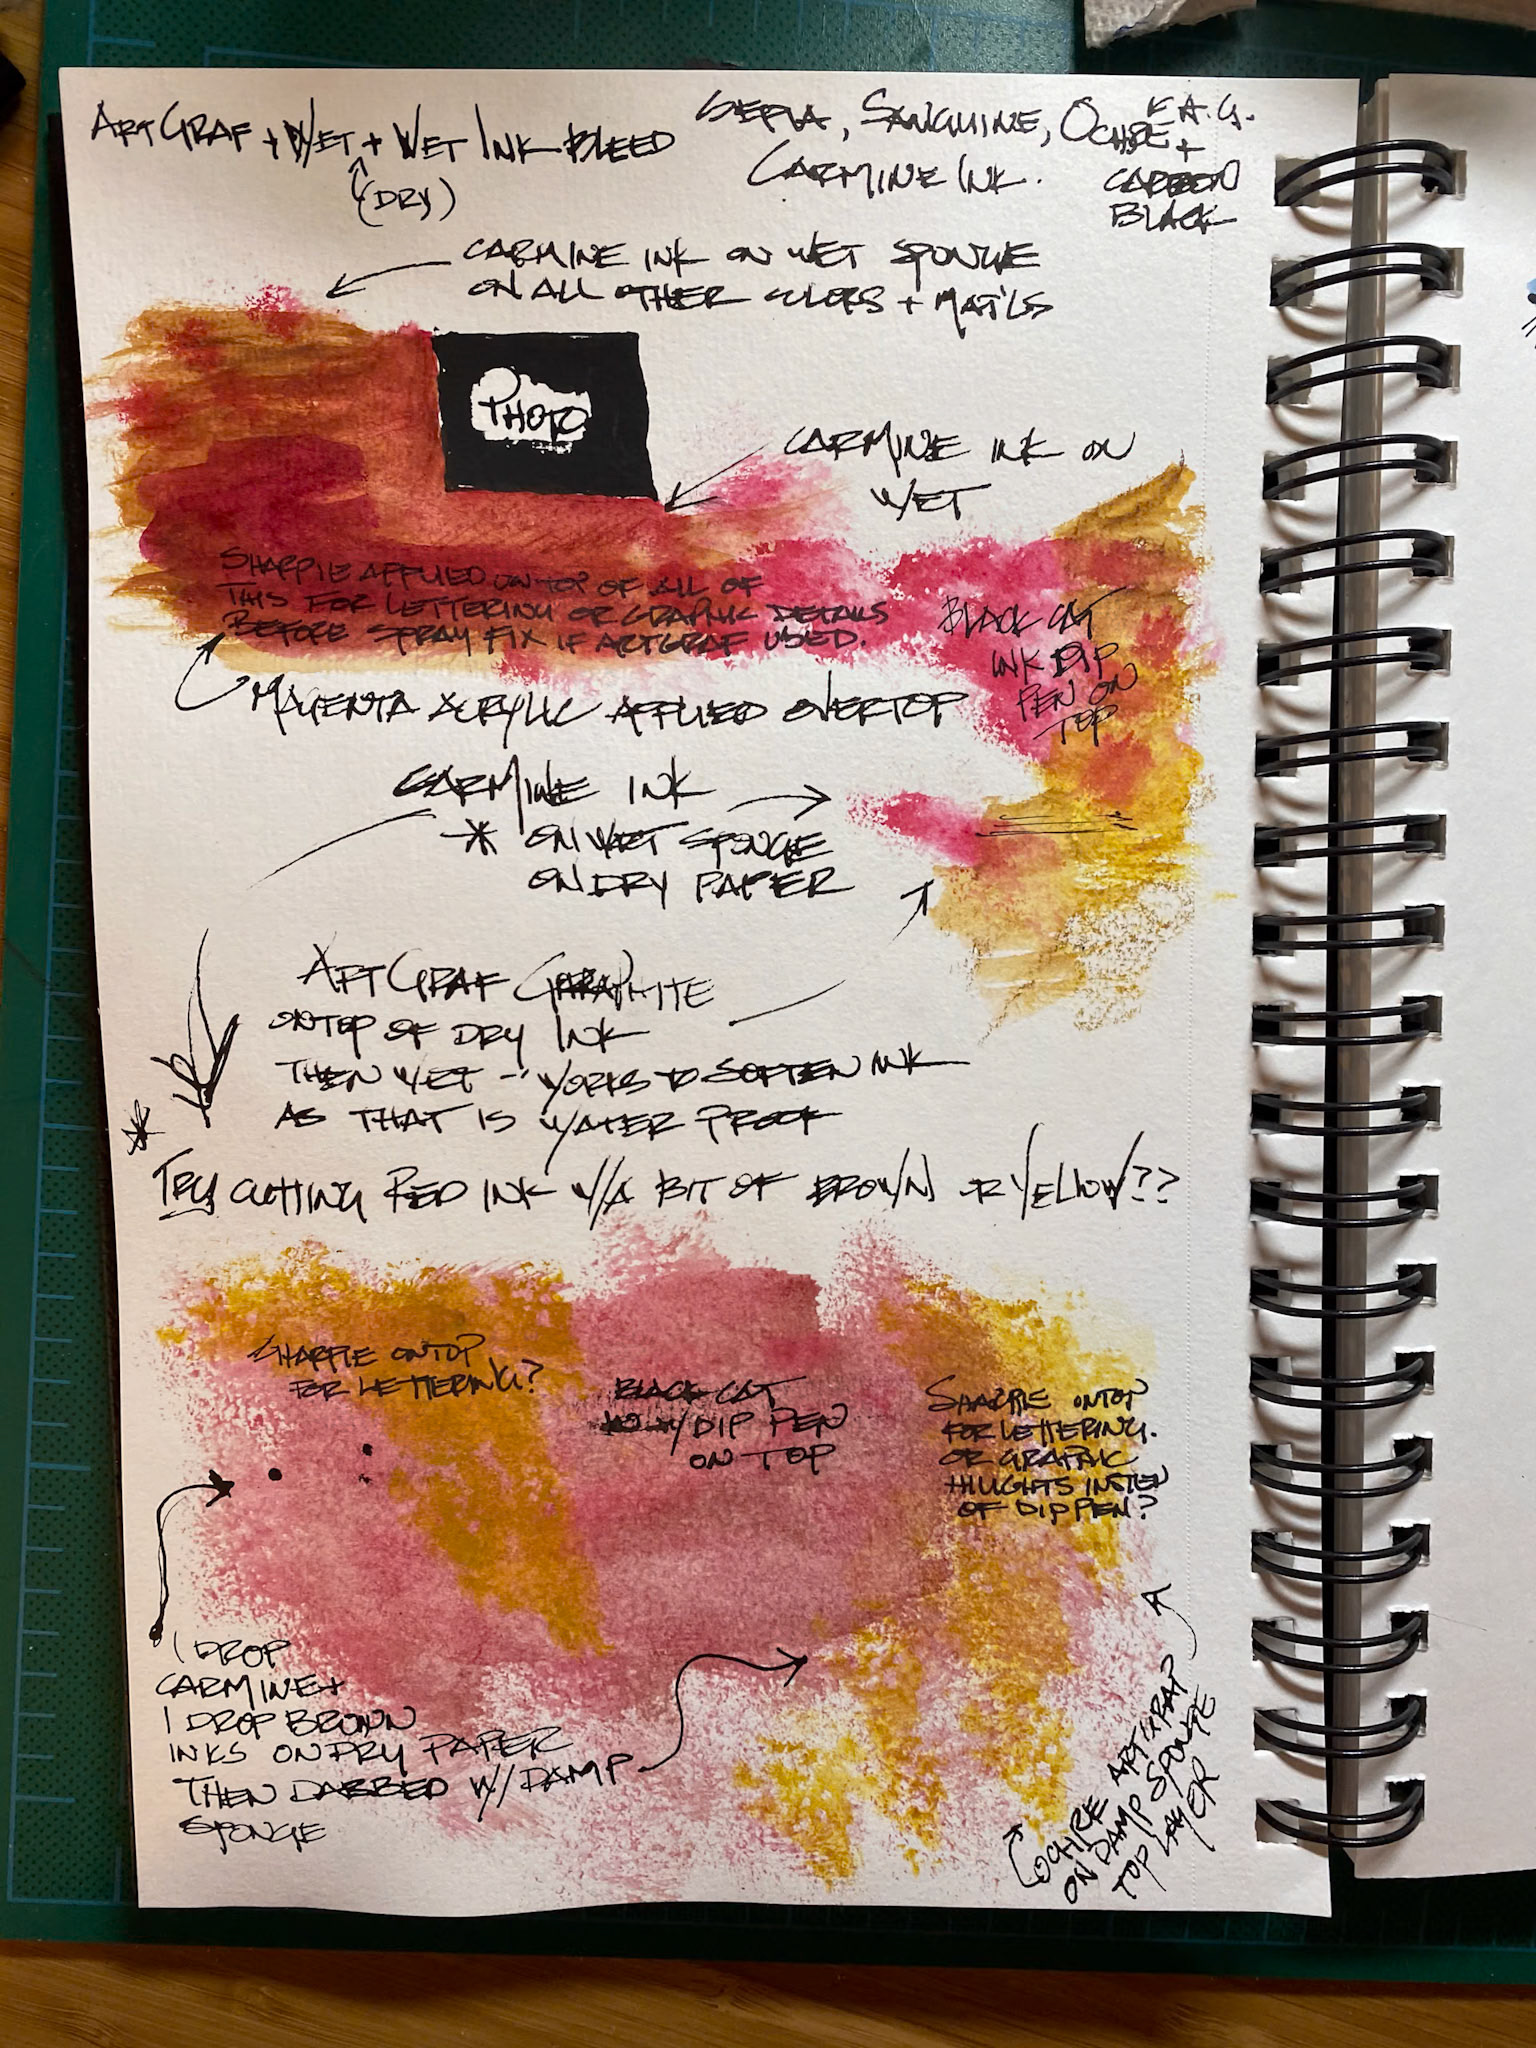 ARTGRAF + WET + WET INK BLEED
(DRY)
SEPIA, SANGUINE, OCHRE A.G.
+
CARMINE INK. CARBON
BLACK
CARMINE INK ON WET SPONGE
ON ALL OTHER COLORS + MAT'LS
PHOTO
CARMINE INK ON
WET
SHARPIE APPLIED ON TOP OF ALL OF
THIS FOR LETTERING OR GRAPHIC DETAILS
BEFORE SPRAY FIX IF ARTGRAF USED.
BLACK CAT
INK DIP
PEN ON
TOP
MAGENTA ACRYLIC APPLIED OVERTOP
CARMINE INK
* ON WET SPONGE
ON DRY PAPER
ARTGRAF GRAPHITE
ONTOP OF DRY INK
THEN WET - WORKS TO SOFTEN INK
AS THAT IS WATER PROOF
*
TRY CUTTING RED INK W/A BIT OF BROWN OR YELLOW??
SHARPIE ONTOP
FOR LETTERING?
BLACK CAT
W/DIP PEN
ON TOP
SHARPIE ONTOP
FOR LETTERING.
OR GRAPHIC
HILIGHTS INSTED
OF DIP PEN?
1 DROP
CARMINE +
1 DROP BROWN
INKS ON DRY PAPER
THEN DABBED W/ DAMP
SPONGE
OCHRE ARTGRAF
ON DAMP SPONGE
TOP LAYER